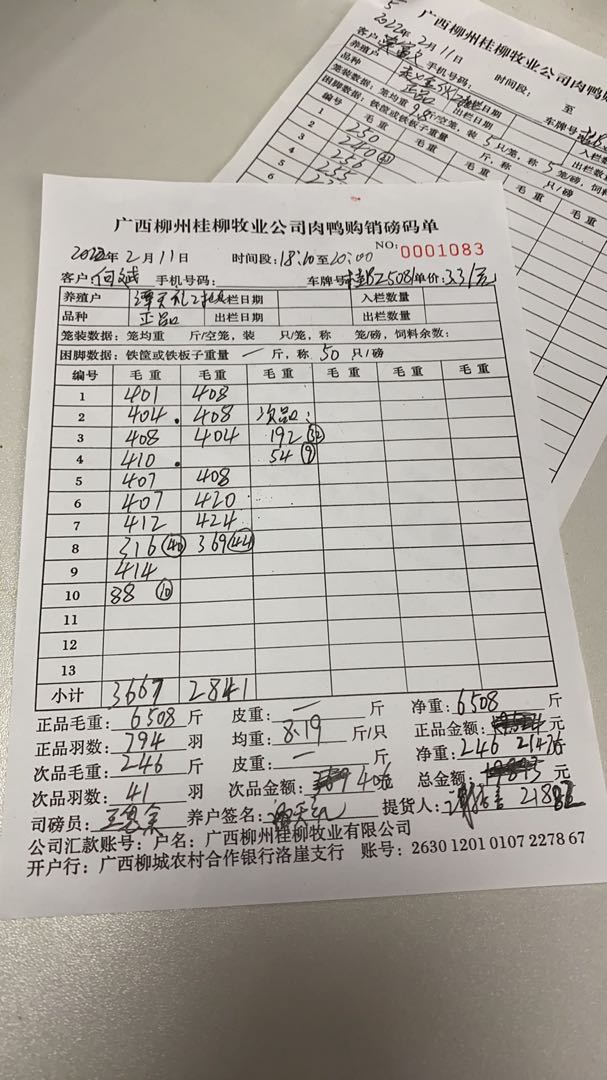 5
广西柳州桂柳牧业公司肉鸭购
2022年2月11日
客户 手机号码: 时间段: 至
养殖户 出栏日期 车牌号
品种 正品 出栏日期 入栏
笼装数据:笼均重 9.8斤/空笼,装 5只/笼,称 5笼/磅,饲料
困脚数据:铁筐或铁板子重量 斤,称 只/磅
编号 毛重 毛重 毛重 毛重
1 250
2 240
3 256
4 255
5
6
广西柳州桂柳牧业公司肉鸭购销磅码单
2022年2月11日 时间段:18:10至20:00 NO:0001083
客户 何斌 手机号码: 车牌号 2508 单价:3.31元
养殖户 栏日期 入栏数量
品种 正品 出栏日期 出栏数量
笼装数据:笼均重 斤/空笼,装 只/笼,称 笼/磅,饲料余数:
困脚数据:铁筐或铁板子重量 一 斤,称 50 只/磅
编号 毛重 毛重 毛重 毛重 毛重 毛重
1 401 408
2 404. 408 次品:
3 408 404 192 (32)
4 410. 54 (9)
5 407 408
6 407 420
7 412 424
8 316 (40) 369 (44)
9 414
10 88 (10)
11
12
13
小计 3667 2841
正品毛重: 6508 斤 皮重: 一 斤 净重: 6508 斤
正品羽数: 794 羽 均重: 8.19 斤/只 正品金额: 元
次品毛重: 246 斤 皮重: 一 斤 净重: 246
次品羽数: 41 羽 次品金额: 总金额: 元
司磅员: 养户签名: 提货人:
公司汇款账号:户名:广西柳州桂柳牧业有限公司
开户行:广西柳城农村合作银行洛崖支行 账号:2630 1201 0107 2278 67